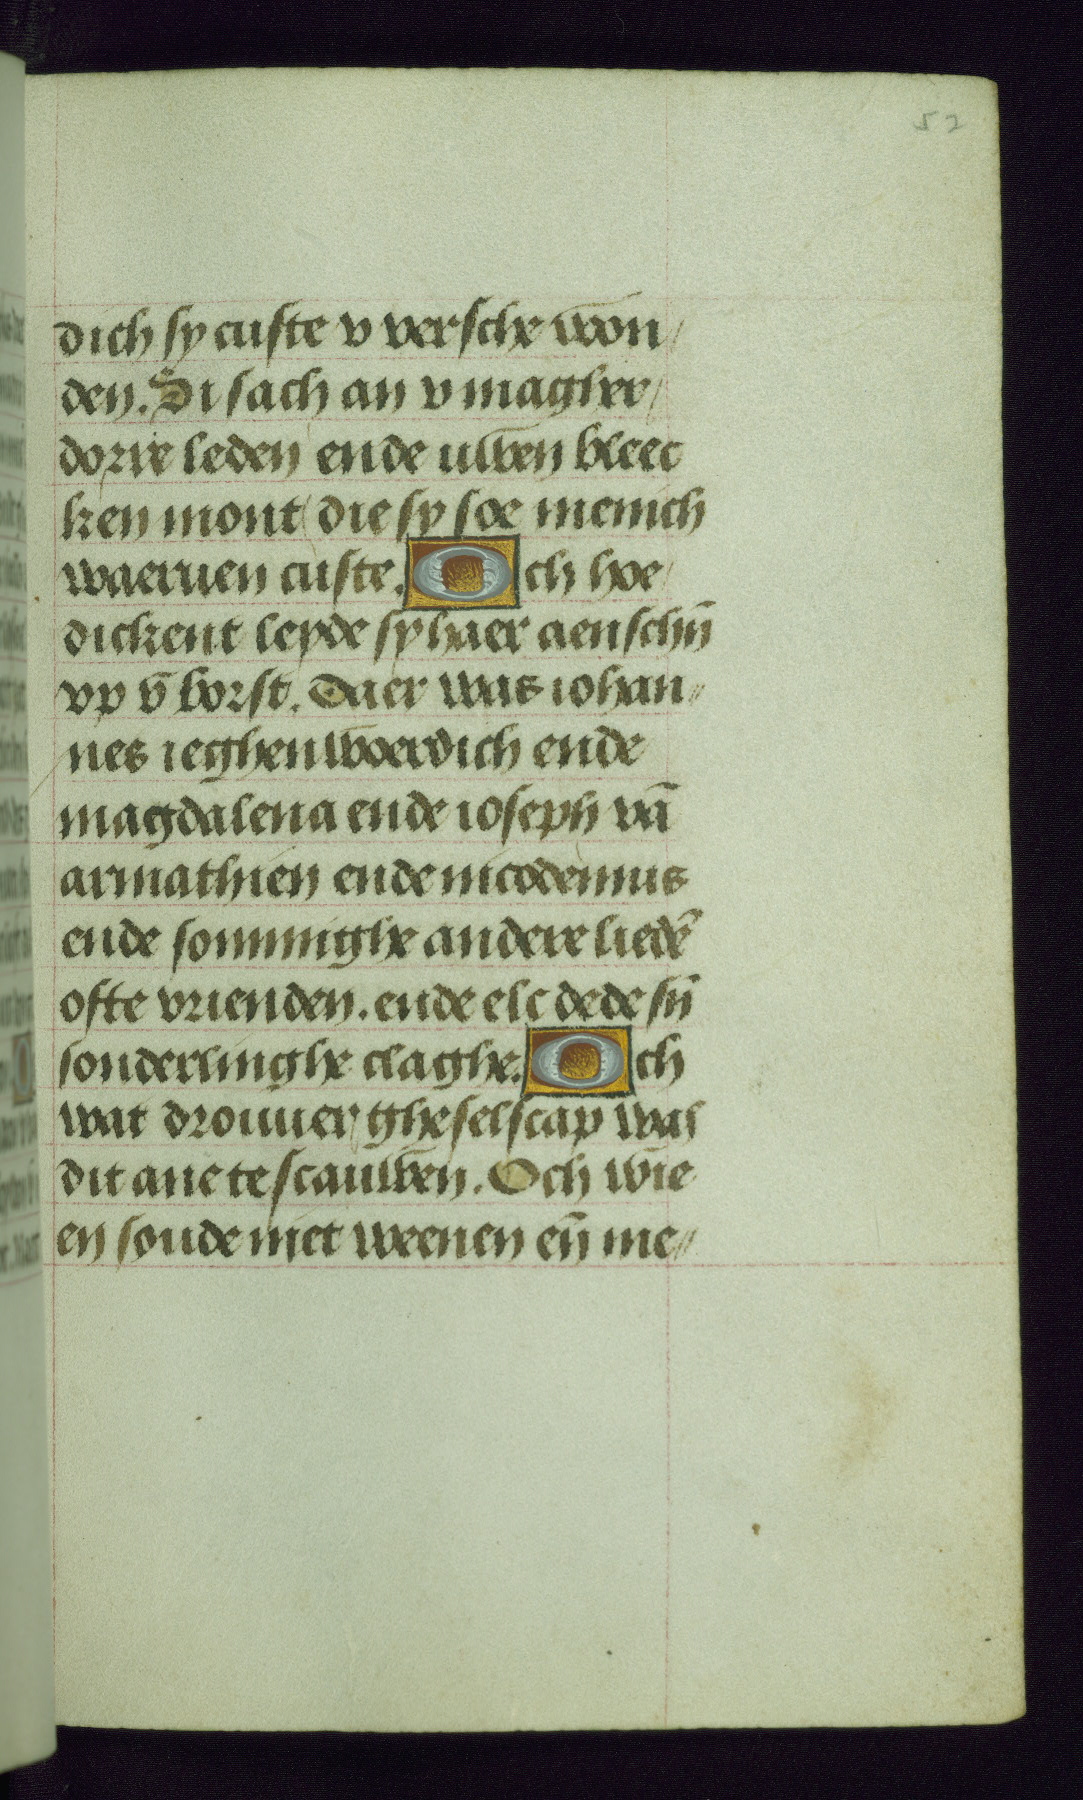 52
dich sy custe v versche won/
den. Si sach an v magher/
dorre leden ende uwen bleec
ken mont die sy soe menich
waeruen custe. Och hoe/
dickent leyde sy haer aenschiñ
vp v̄ borst. Daer was iohan〃
nes ieghenwoerdich ende
magdalena ende ioseph vā
armathien ende nicodemus
ende sommighe andere liedē
ofte vrienden. ende elc dede sin̄
sonderlinghe claghe. Och
wat drouuer gheselscap was
dit ane te scauwen. Och wie
en soude niet weenen en̄ me〃